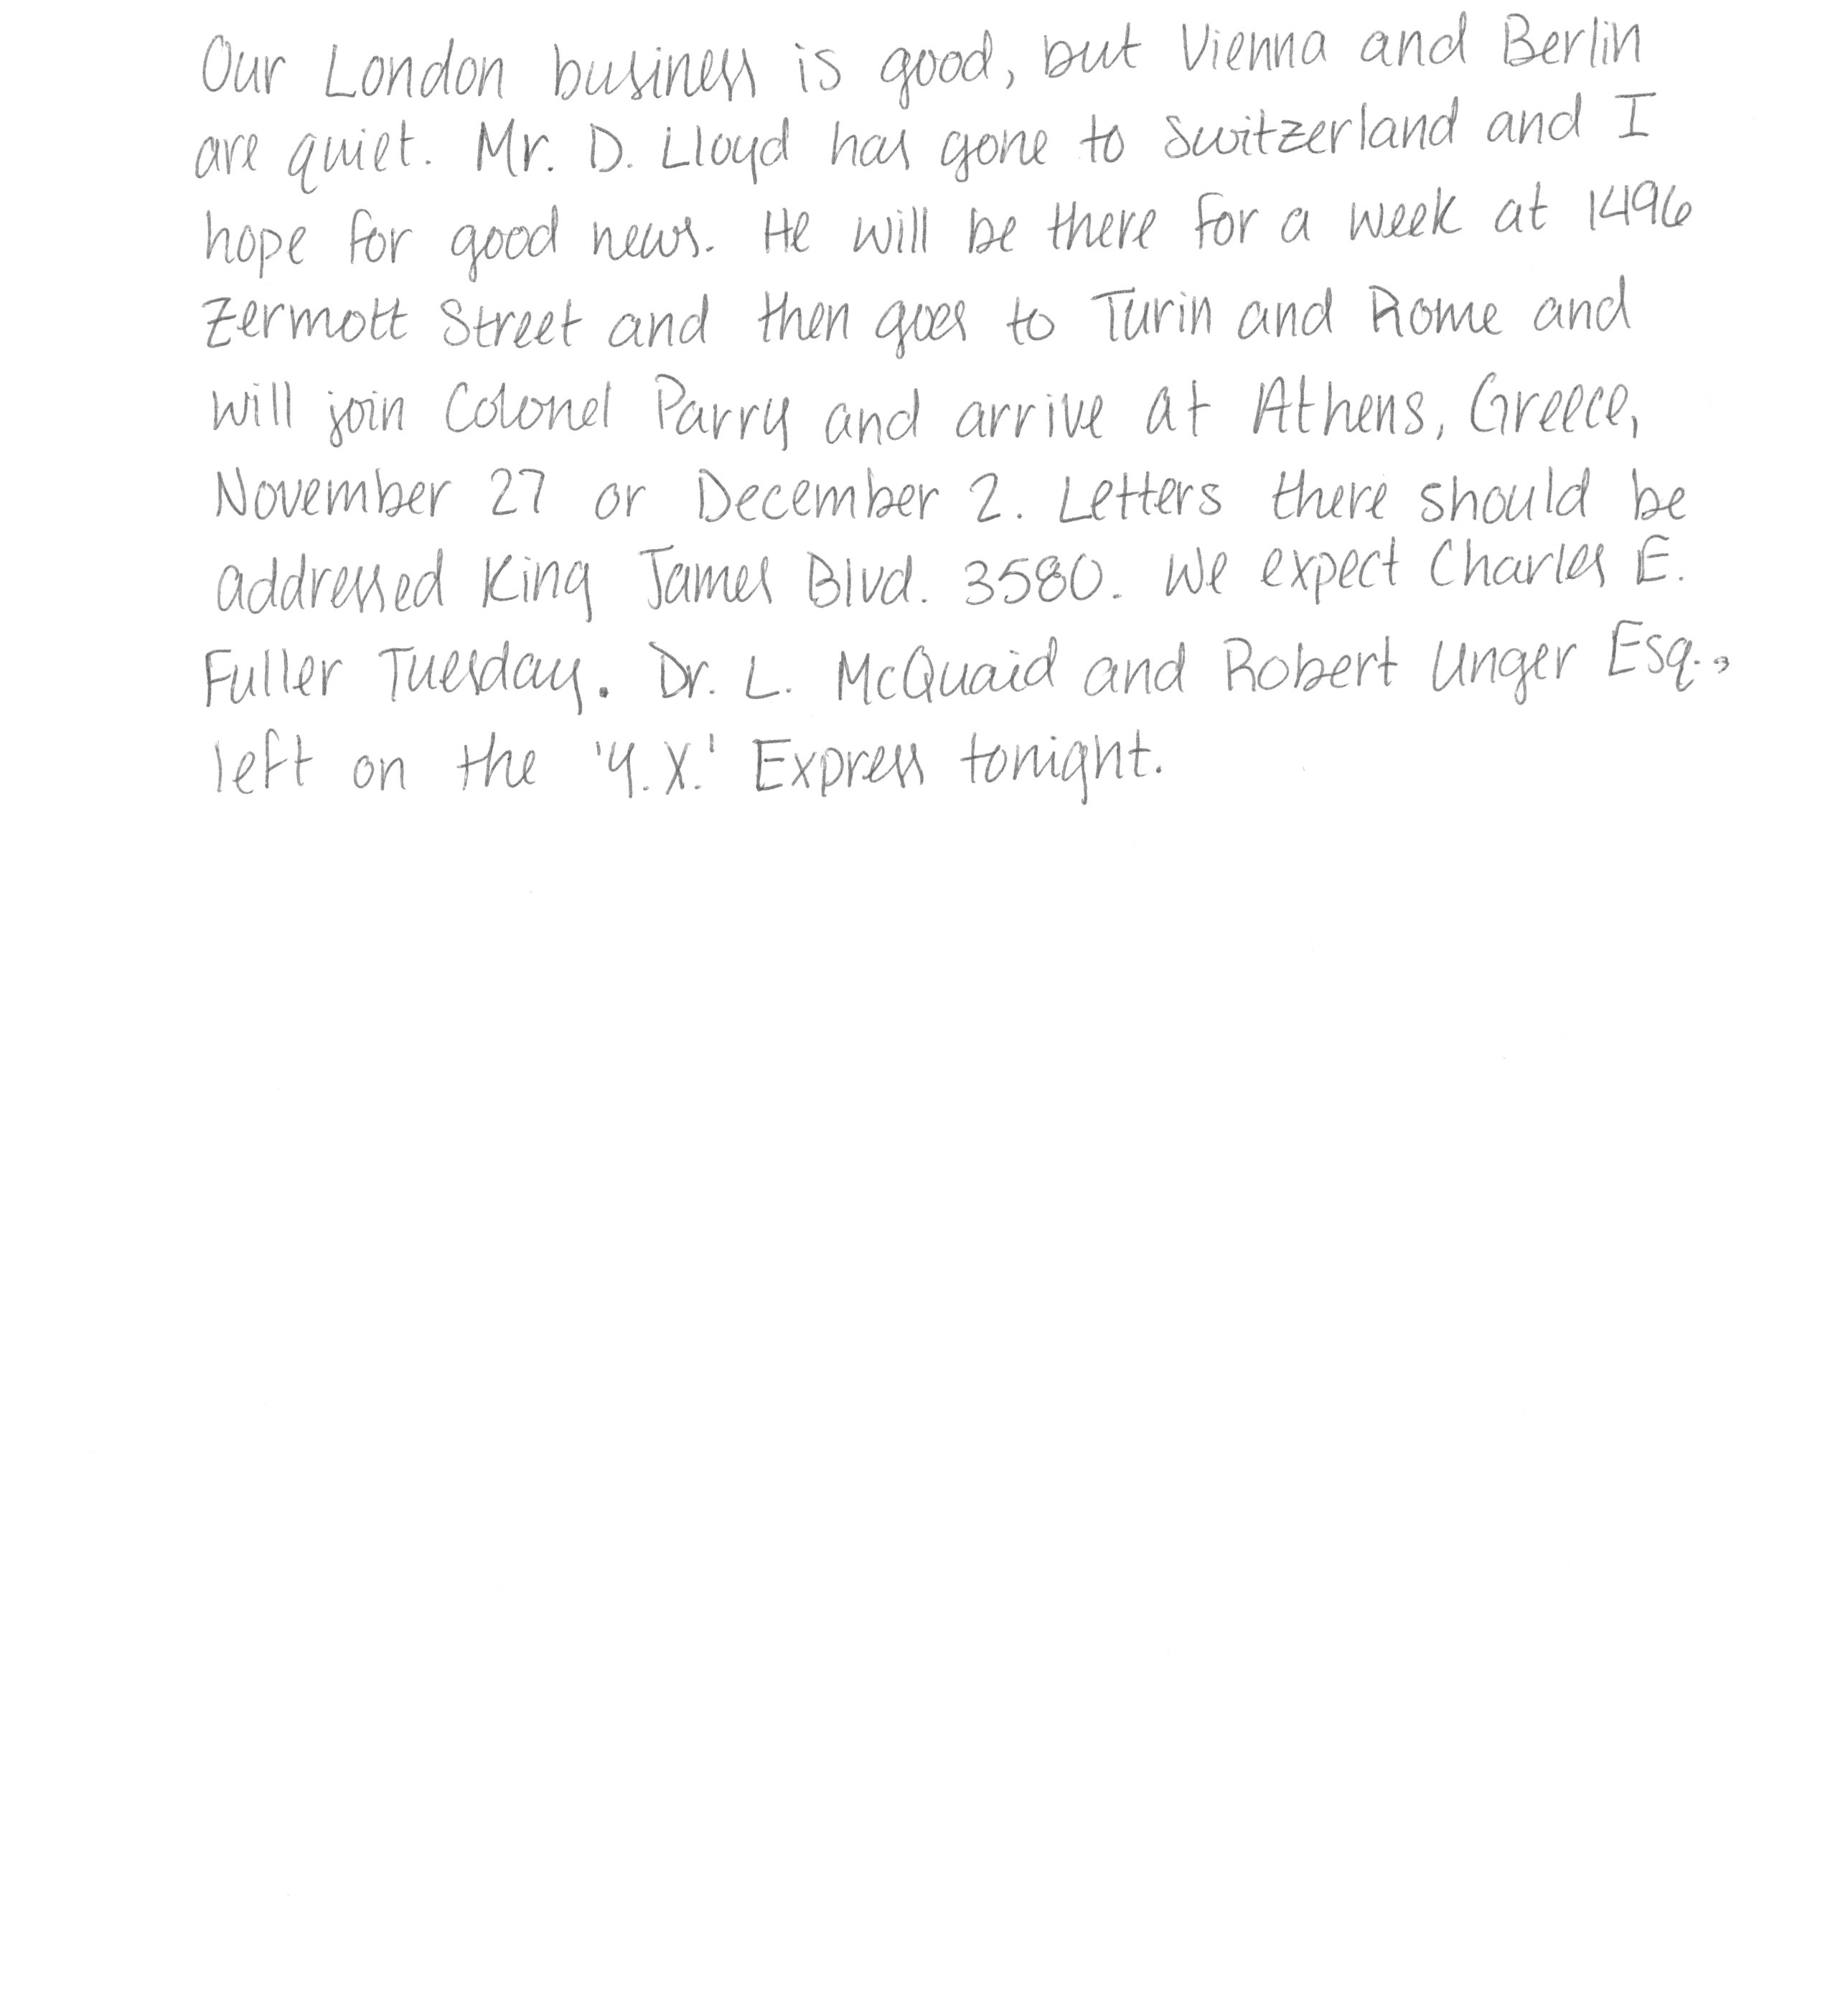 Our London business is good, but Vienna and Berlin
are quiet. Mr. D. Lloyd has gone to Switzerland and I
hope for good news. He will be there for a week at 1496
Zermott Street and then goes to Turin and Rome and
will join Colonel Parry and arrive at Athens, Greece,
November 27 or December 2. Letters there should be
addressed King James Blvd. 3580. We expect Charles E.
Fuller Tuesday. Dr. L. McQuaid and Robert Unger Esq.,
left on the 'Y.X.' Express tonight.